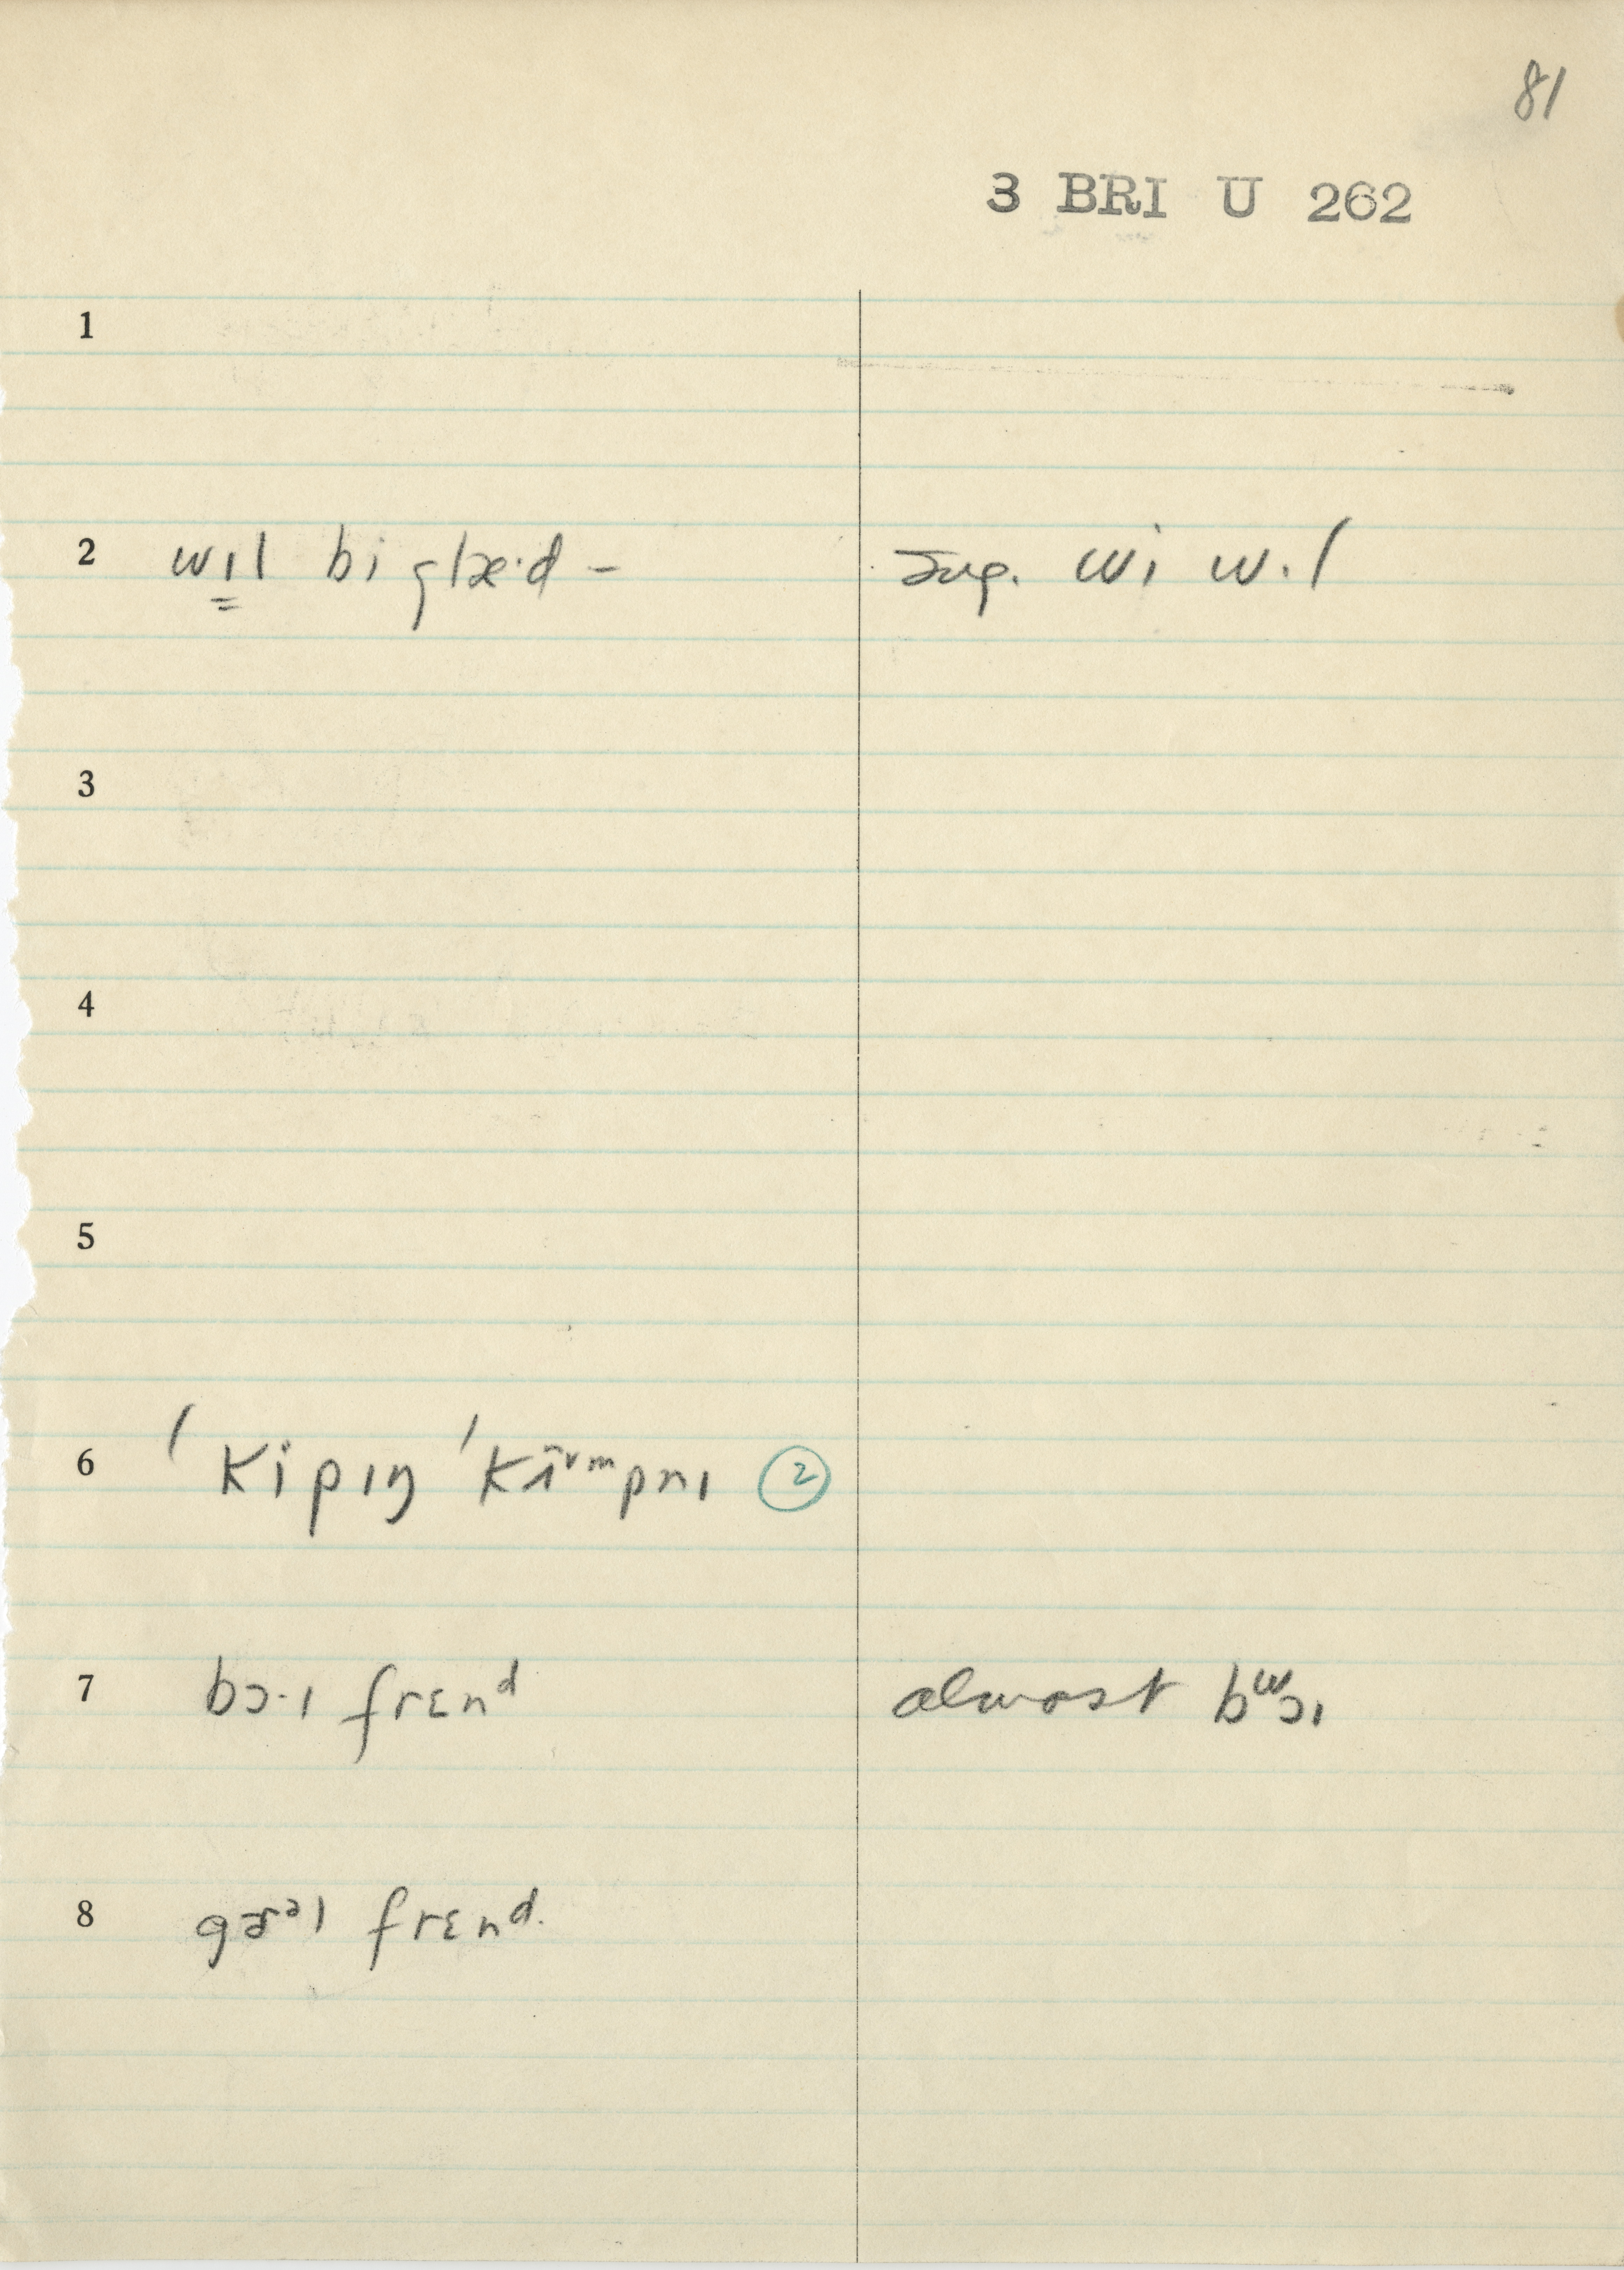 81
3 BRI U 262
1
2 wɪl bi glæ·d – sug. wi wɪl
3
4
5
6 ˈkipɪŋ ˈkʌmpnɪ ②
7 bɔ·ɪ frɛnᵈ almost bʷɔɪ
8 frɛnᵈ.